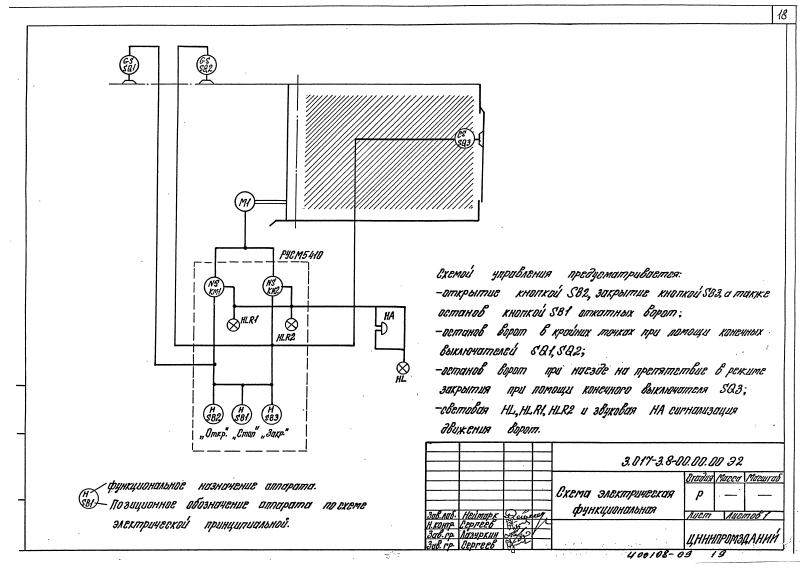 18
GS
SQ1
GS
SQ2
CS
SQ3
M1
РУСМ5410
NS
KM1
NS
KM2
HLR1
HLR2
HA
HL
H
SB2
H
SB1
H
SB3
„Откр." „Стоп" „Закр."
Схемой управления предусматривается:
-открытие кнопкой SB2, закрытие кнопкой SB3, а также
останов кнопкой SB1 откатных ворот;
-останов ворот в крайних точках при помощи конечных
выключателей SQ1, SQ2;
-останов ворот при наезде на препятствие в режиме
закрытия при помощи конечного выключателя SQ3;
-световая HL, HLR1, HLR2 и звуковая HA сигнализация
движения ворот.
H
SB1
функциональное назначение аппарата.
Позиционное обозначение аппарата по схеме
электрической принципиальной.
3.017-3.8-00.00.00 Э2
Схема электрическая
функциональная
Стадия Масса Масштаб
Р — —
Лист Листов 1
ЦНИИПРОМЗДАНИЙ
Зав.лаб. Неймарк
Н.контр Сергеев
Зав.гр. Лазуркин
Зав.гр. Сергеев
400108-09 19